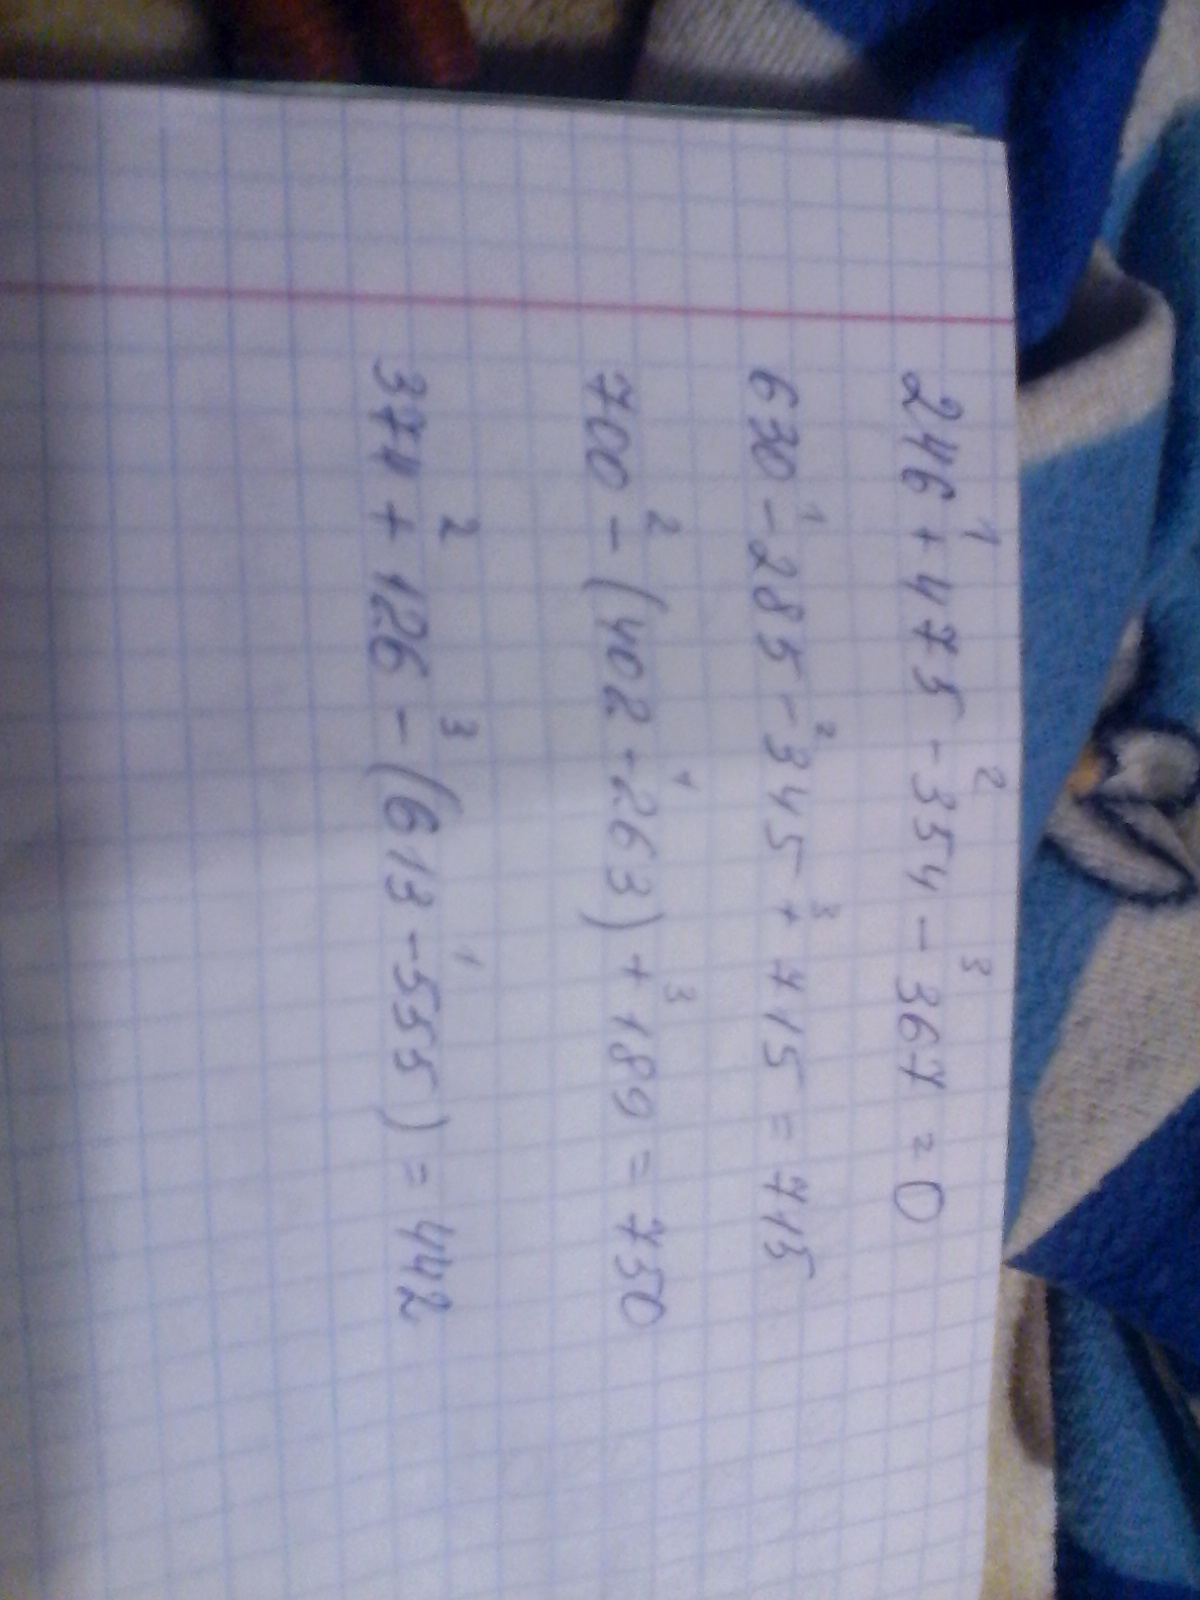 246 + 475 - 354 - 367 = 0
630 - 285 - 345 + 415 = 715
700 - (402 - 263) + 189 = 750
374 + 126 - (613 - 555) = 442